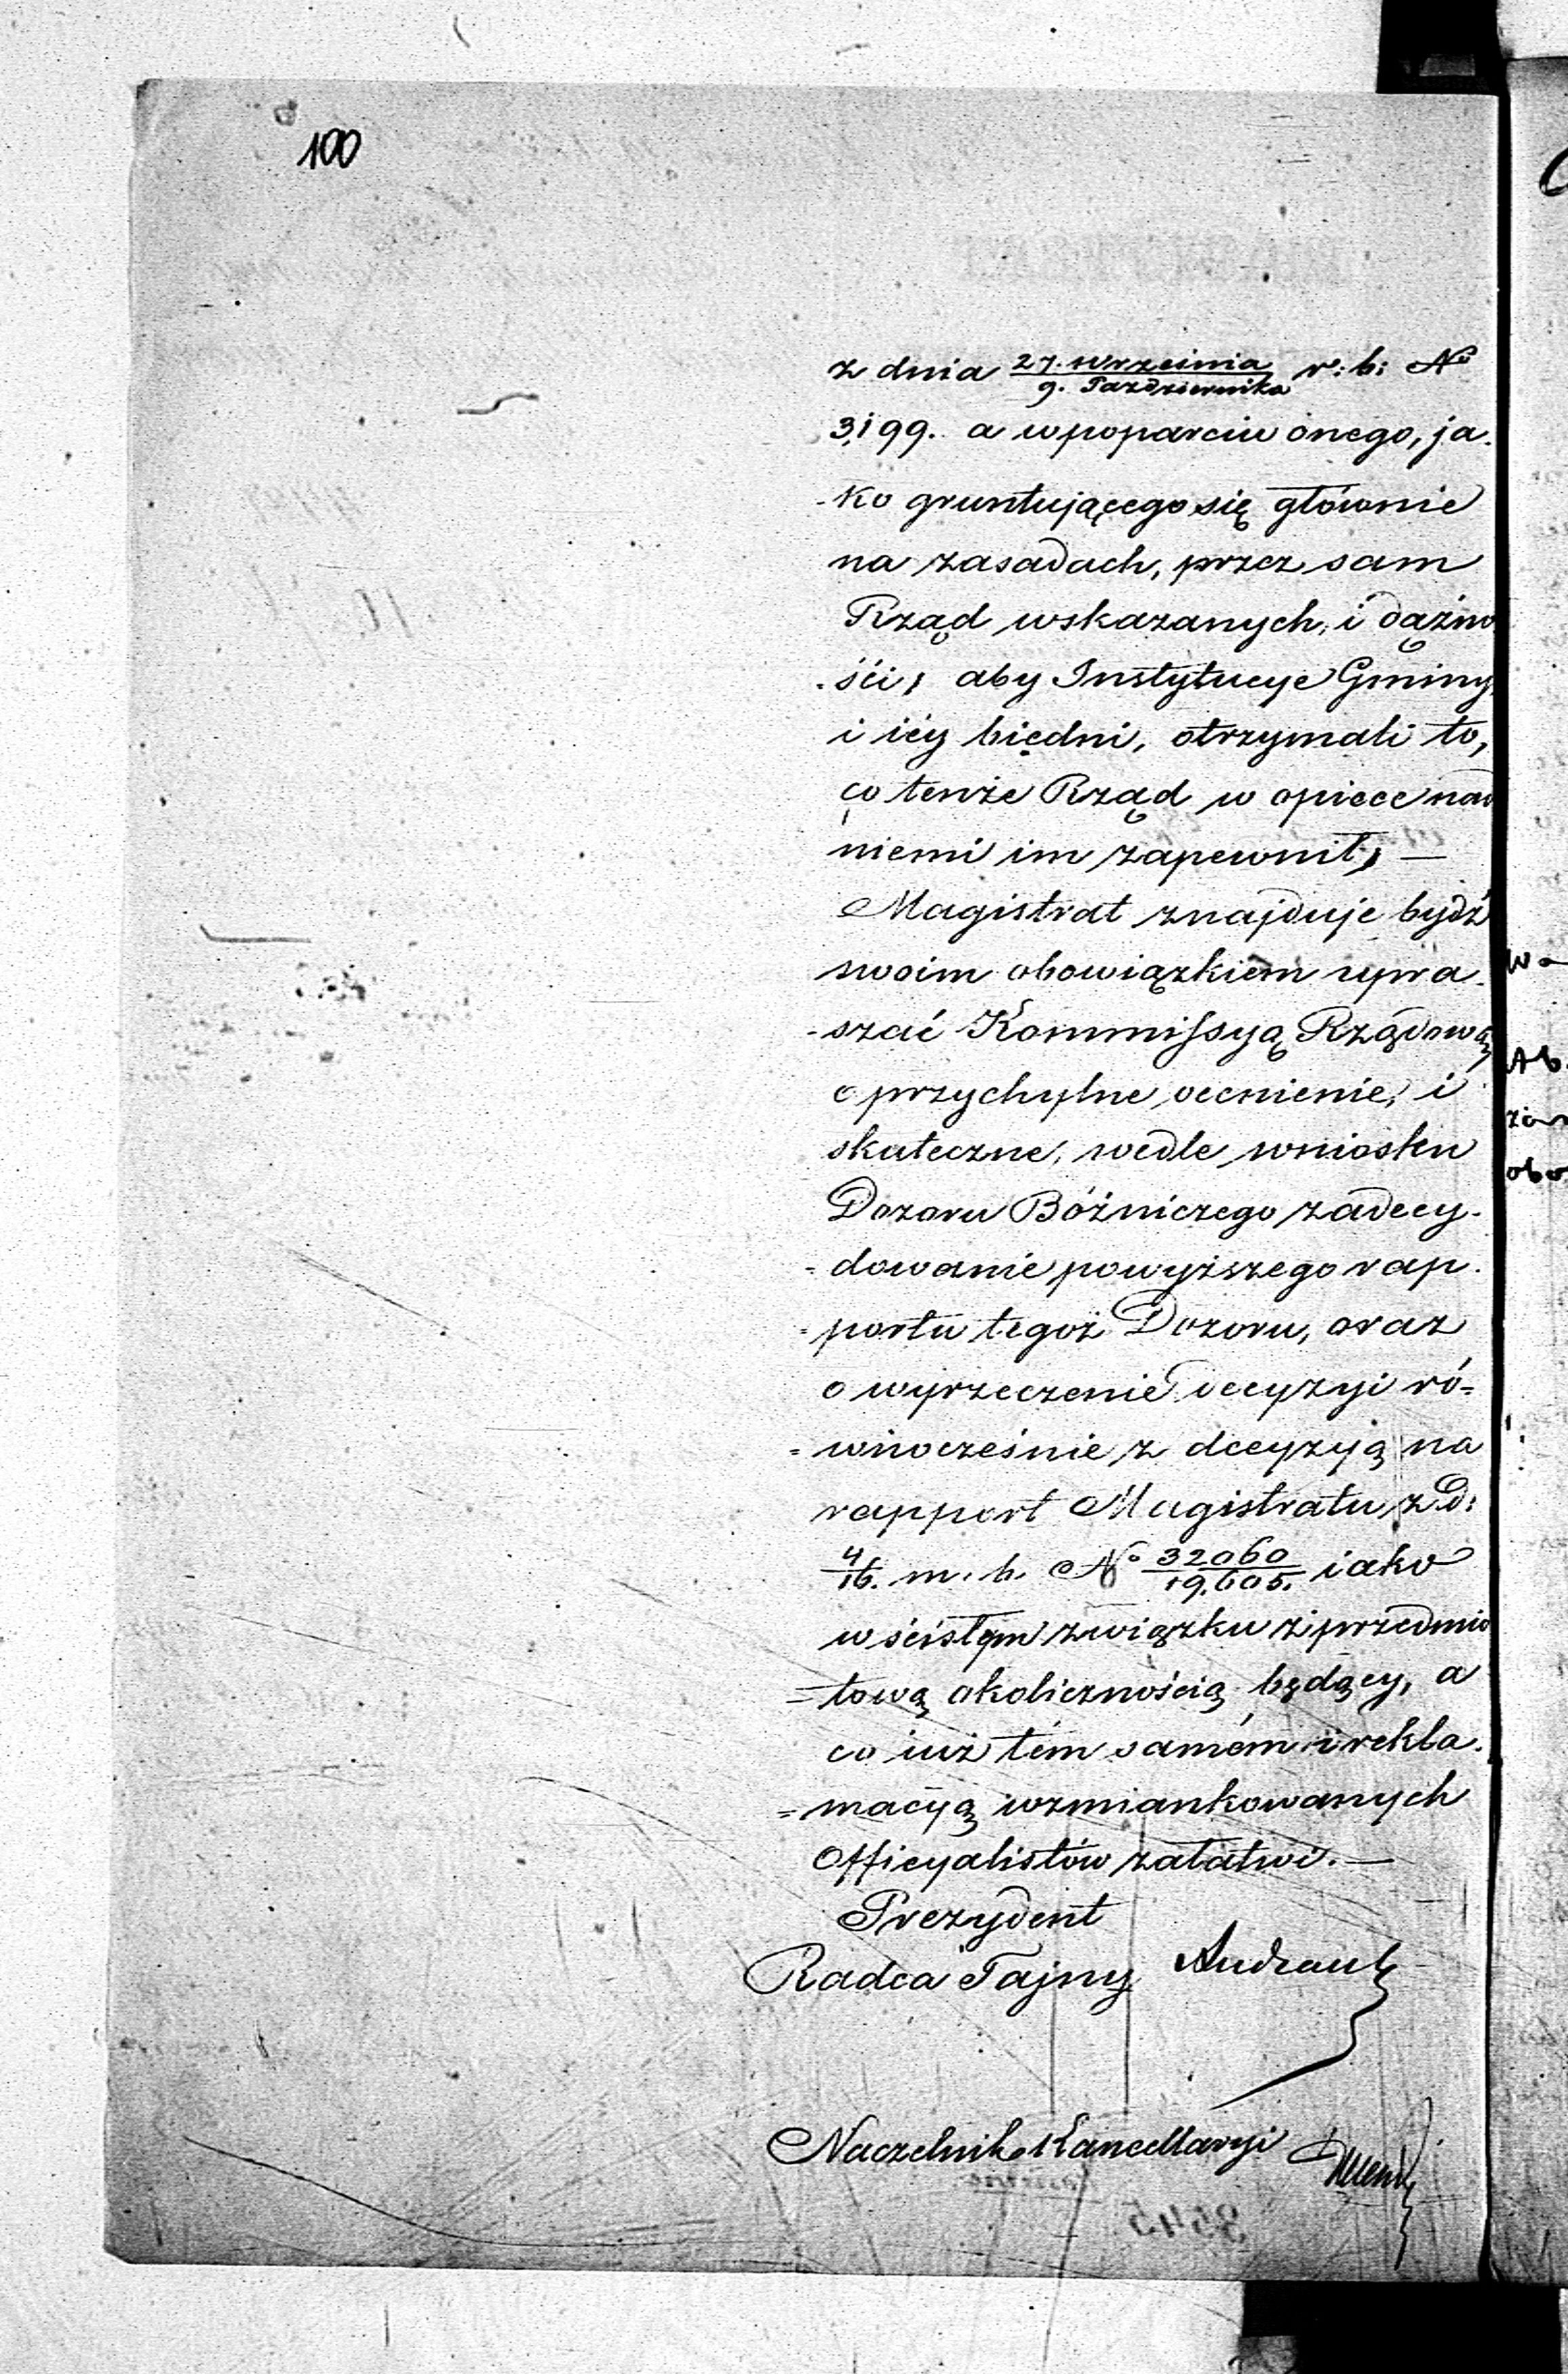 100
z dnia 27. Września / 9. Października r: b: No
3,199. a w poparciu onego, ja-
-ko gruntującego się głównie
na zasadach, przez sam
Rząd wskazanych, i dążno
-ści, aby Instytucye Gminy,
i iéy biedni, otrzymali to,
co tenże Rząd w opiece nad
niemi im zapewnił, —
Magistrat znajduje bydź
swoim obowiązkiem upra-
-szać Kommissyą Rządową
o przychylne ocenienie, i
skuteczne, wedle wniosku
Dozoru Bóżniczego zadecy-
-dowanie powyższego rap-
=portu tegoż Dozoru, oraz
o wyrzeczenie decyzyi ró=
=wnocześnie z decyzyą na
rapport Magistratu z d:
4/16. m. b. No 32060/19,605. iako
w ścisłym związku z przedmio
=tową okolicznością będący, a
co iuż tém samém i rekla-
=macyą wzmiankowanych
Officyalistów załatwi. —
Prezydent
Radca Tajny Andrault
Naczelnik Kancellaryi